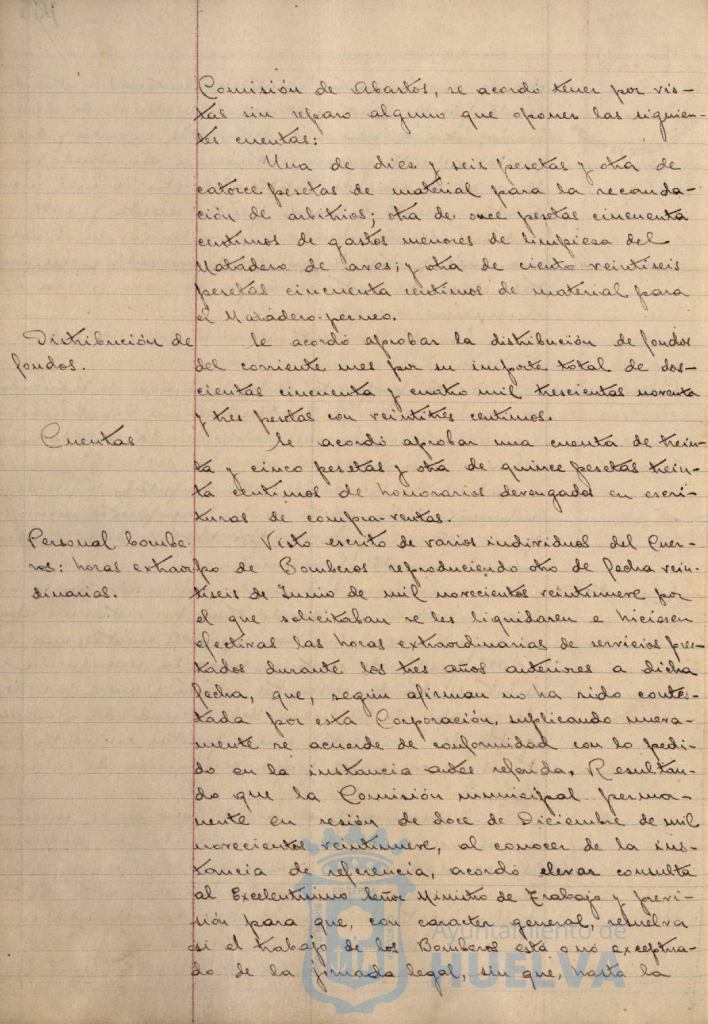 Comisión de Abastos, se acordó tener por vis-
tas sin reparo alguno que oponer las siguien-
tes cuentas:
Una de diez y seis pesetas y otra de
catorce pesetas de material para la recauda-
ción de arbitrios; otra de once pesetas cincuenta
centimos de gastos menores de limpiesa del
Matadero de aves; y otra de ciento veintiseis
pesetas cincuenta centimos de material para
el Matadero-perneo.
Distribución de
fondos.
Se acordó aprobar la distribución de fondos
del corriente mes por su importe total de dos-
cientas cincuenta y cuatro mil trescientas noventa
y tres pesetas con veintitres centimos.
Cuentas
Se acordó aprobar una cuenta de trein-
ta y cinco pesetas y otra de quince pesetas trein-
ta centimos de honorarios devengados en escri-
turas de compra-ventas.
Personal bombe-
ros: horas extraor-
dinarias.
Visto escrito de varios individuos del Cuer-
po de Bomberos reproduciendo otro de fecha vein-
tiseis de Junio de mil novecientos veintinueve por
el que solicitaban se les liquidasen e hiciesen
efectivas las horas extraordinarias de servicios pres-
tados durante los tres años anteriores a dicha
fecha, que, según afirman no ha sido contes-
tada por esta Corporación, suplicando nueva-
mente se acuerde de conformidad con lo pedi-
do en la instancia antes referida. Resultan-
do que la Comisión municipal perma-
nente en sesión de doce de Diciembre de mil
novecientos veintinueve, al conocer de la ins-
tancia de referencia, acordó elevar consulta
al Excelentisimo Señor Ministro de Trabajo y previ-
sión para que, con caracter general, resuelva
si el trabajo de los Bomberos está o no exceptua-
do de la jornada legal, sin que, hasta la
Ayuntamiento de
HUELVA